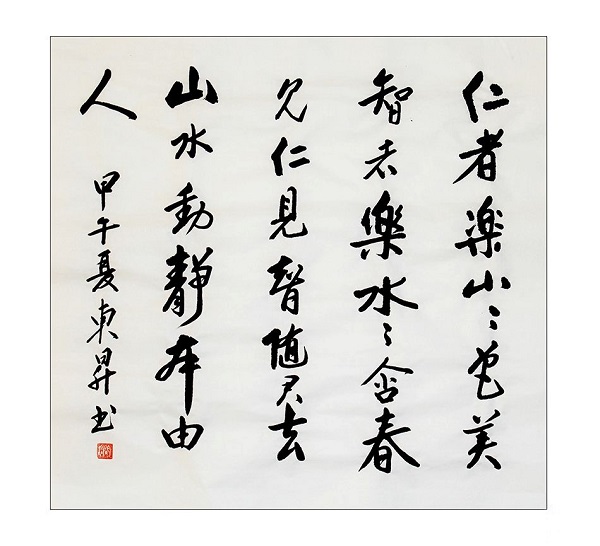 仁者楽山〻色美
智者樂水〻含春
见仁見智随君去
山水動靜本由
人 甲午夏東昇书